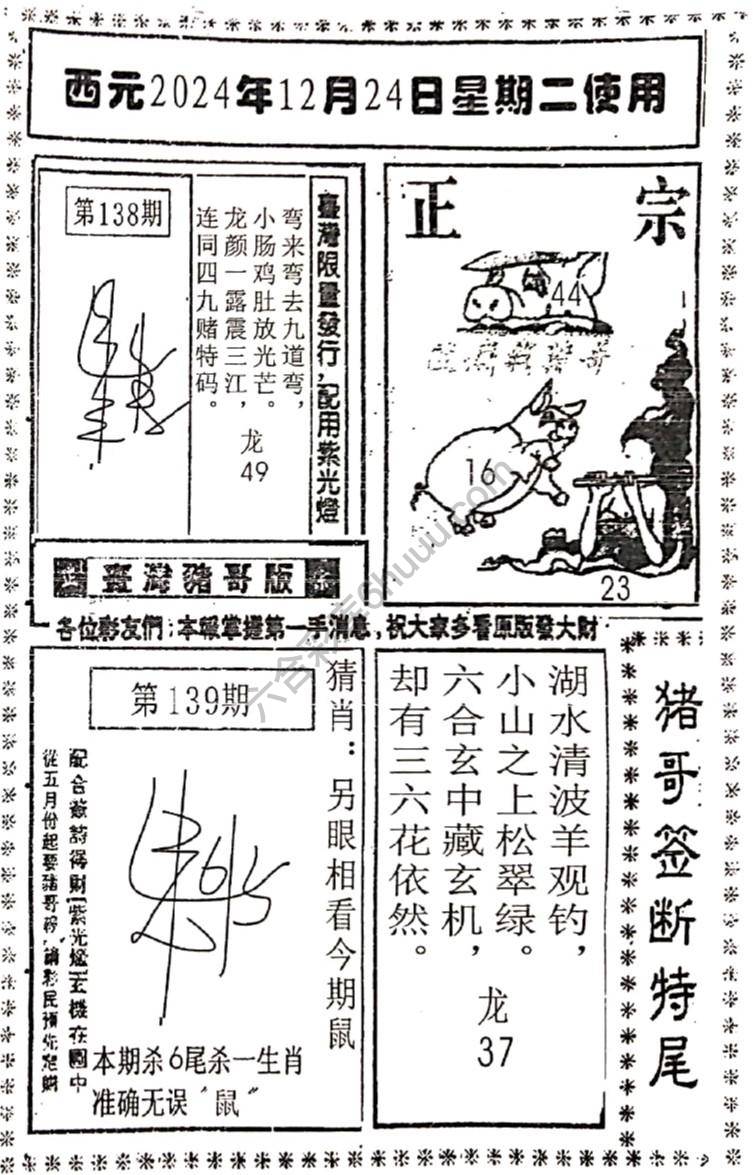 西元2024年12月24日星期二使用
第138期
臺灣限量發行，配用紫光燈
弯来弯去九道弯，
小肠鸡肚放光芒。
龙颜一露震三江，
连同四九赌特码。
龙
49
正宗
44
16
23
臺灣豬哥版
各位彩友們：本報掌握第一手消息，祝大家多看原版發大財
第139期
猜肖：另眼相看今期鼠
從五月份起要豬哥報，請彩民預先
本期杀6尾杀一生肖
准确无误“鼠”
湖水清波羊观钓，
小山之上松翠绿。
六合玄中藏玄机，
却有三六花依然。
龙
37
猪哥签断特尾
六合彩库6huuu.com